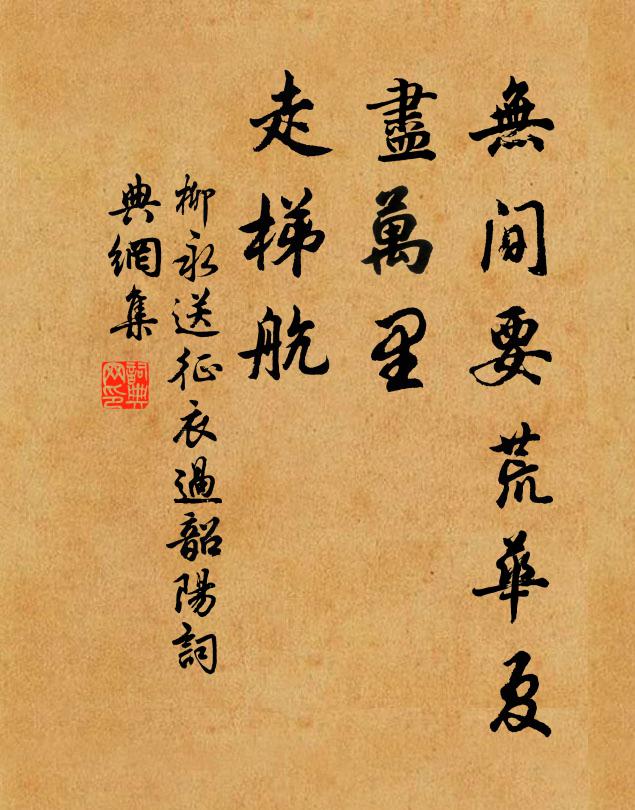 無間要荒華夏
盡萬里
走梯航
柳永送征衣過韶陽詞
典網集
詞典
网印